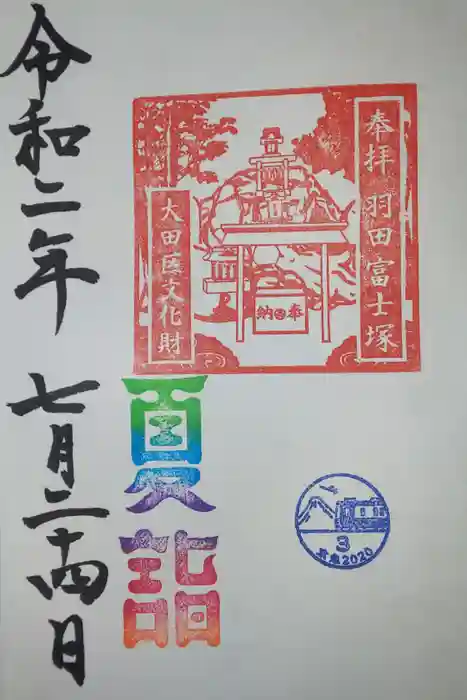 奉拝 羽田富士塚
大田区文化財
奉納
夏詣
3
2020
令和二年 七月二十四日